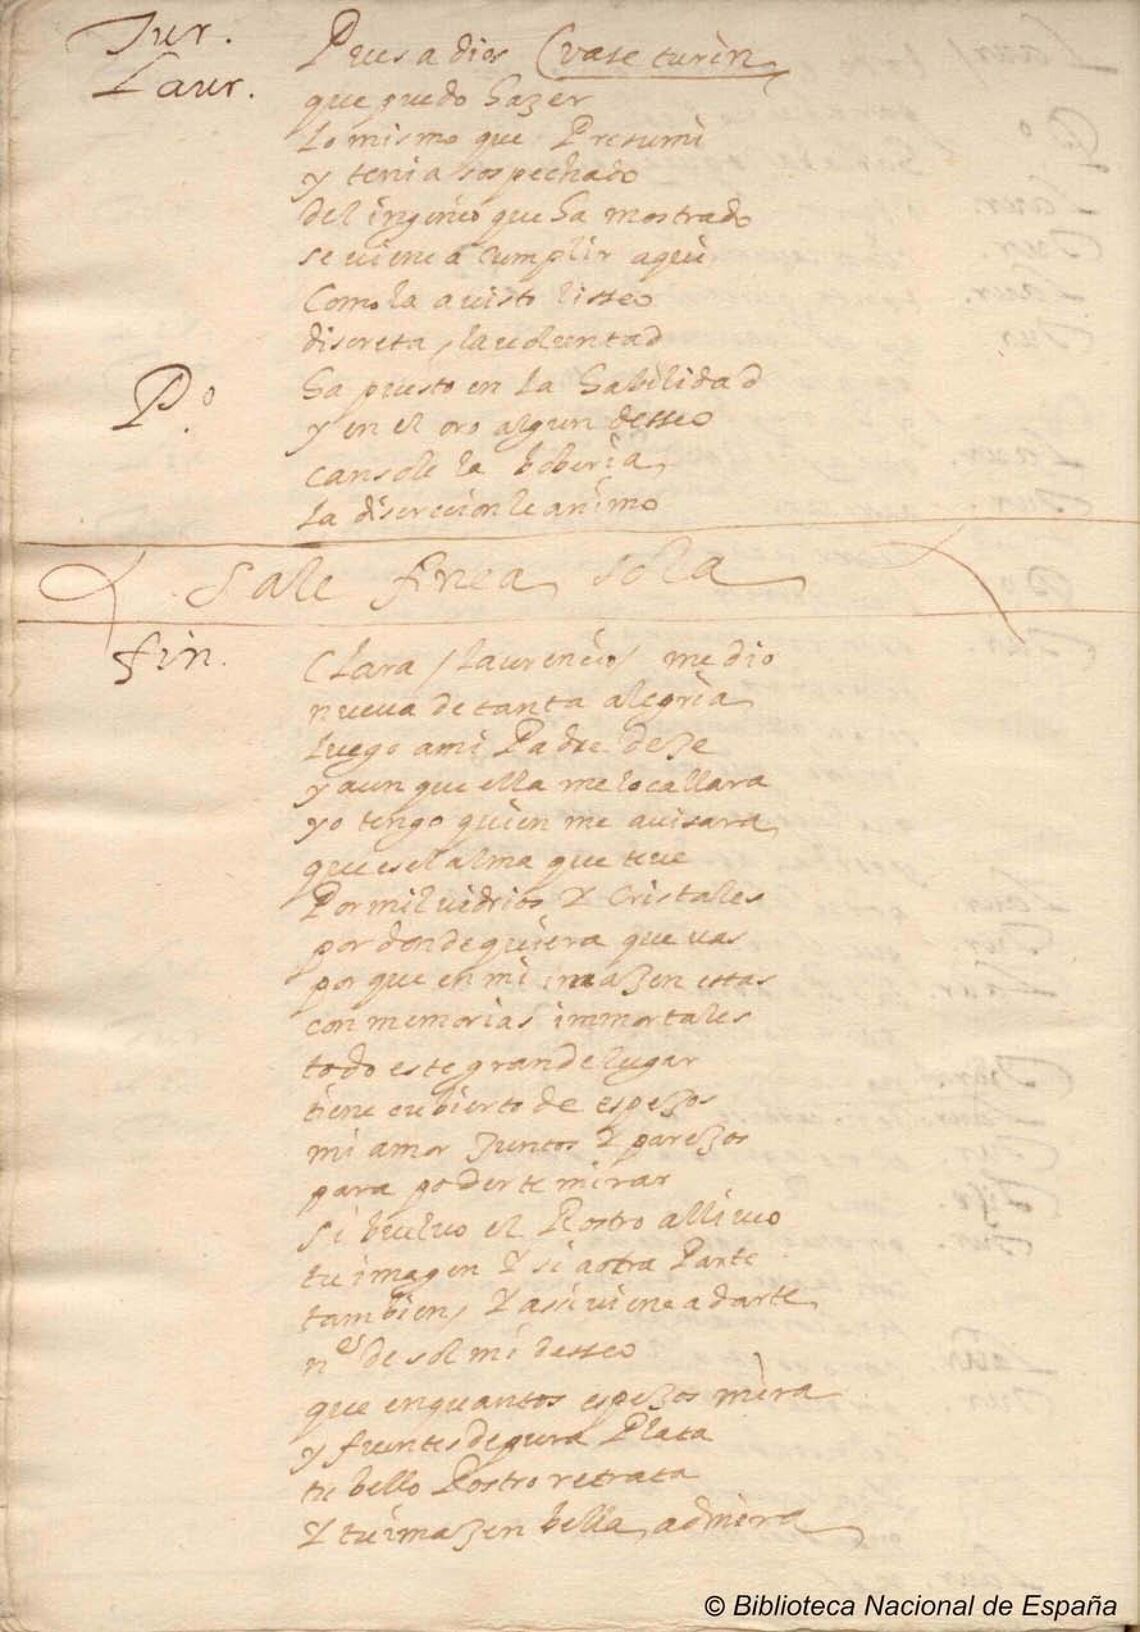 Tur. Pues a dios (vase turin
Laur. que puedo hazer
lo mismo que Presumi
y tenia sospechado
del ingenio que ha mostrado
se viene a cumplir aqui
Como la a visto lisseo
discreta / la voluntad
Pº. ha puesto en la habilidad
y en el oro algun desseo
cansole la boberia
la discrecion le animo
Sale finea sola
fin. Clara / laurencio / me dio
nueva de tanta alegria
luego a mi Padre deze
y aun que ella me lo callara
yo tengo quien me avisara
que es el alma que te ve
Por mil vidrios Y Cristales
por donde quiera que vas
por que en mi imazen estas
con memorias immortales
todo este grande lugar
tiene cubierto de espezos
mi amor Juntos Y parezos
para poderte mirar
si buelvo el Rostro alli veo
tu imagen Y si a otra Parte
tambien / Y assi viene a darte
n^e de sol mi desseo
que en quantos espezos mira
y fuentes de pura Plata
tu bello Rostro retrata
Y tu imazen bella admira
© Biblioteca Nacional de España